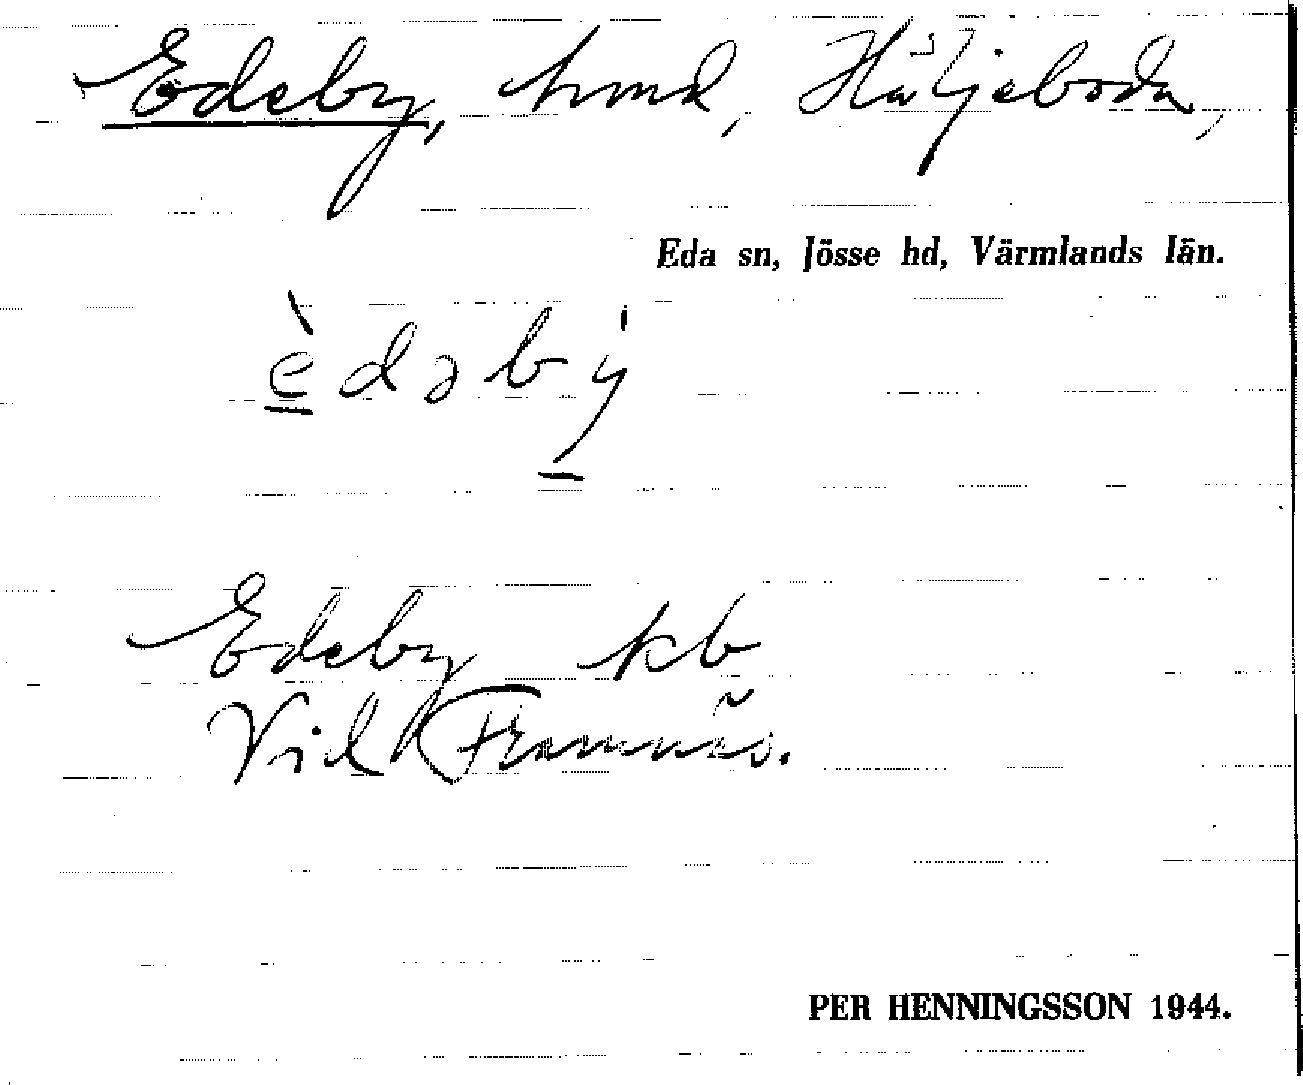 Edeby, hmd, Häljeboda,
Eda sn, Jösse hd, Värmlands län.
è̱dəbẏ̱
Edeby kb
Vid Framnäs.
PER HENNINGSSON 1944.